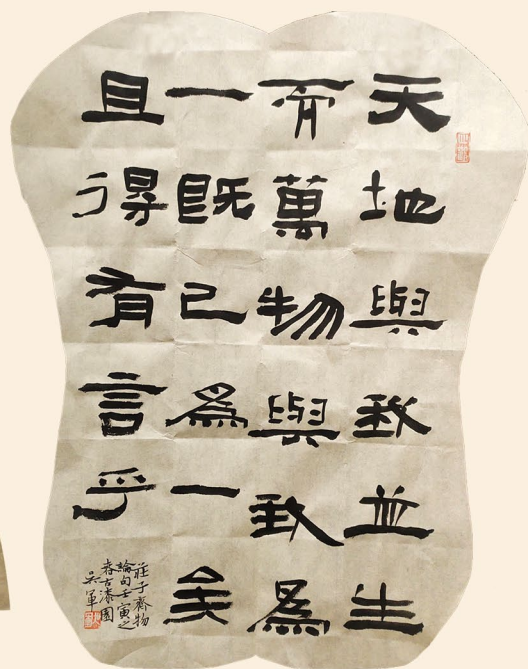 天地與我並生
而萬物與我爲
一既已爲一矣
且得有言乎
莊子齊物
論句壬寅之
春古漆園
吳軍